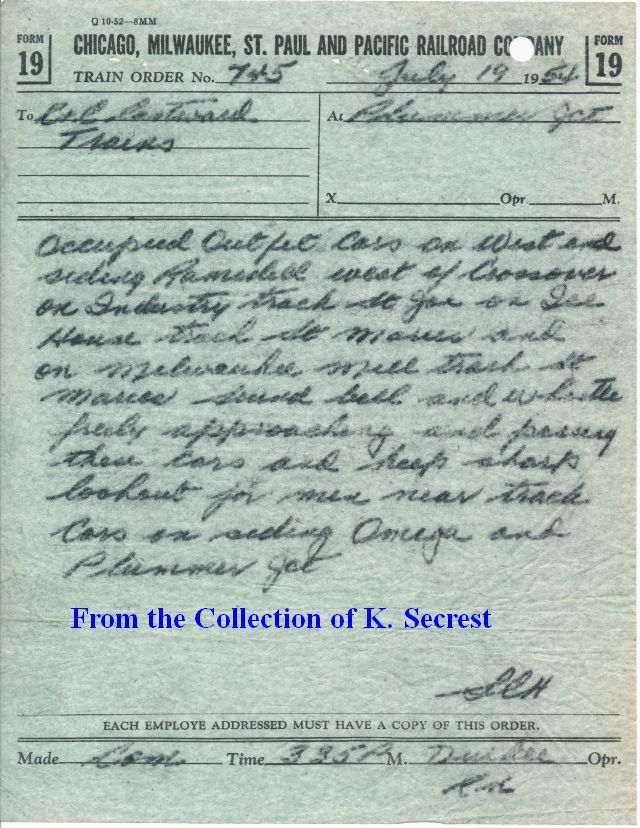 Q 10-52—8MM
FORM 19
CHICAGO, MILWAUKEE, ST. PAUL AND PACIFIC RAILROAD COMPANY
FORM 19
TRAIN ORDER No. 745 July 19 1954
To C&E Eastward
Trains
At Plummer Jct
X Opr. M.
Occupied Outfit Cars on West end
siding Ramsdell west of Crossover
on Industry track St Joe on Ice
House track St Maries and
on Milwaukee Mill track St
Maries sound bell and whistle
freely approaching and passing
these cars and keep sharp
lookout for men near track
Cars on siding Omega and
Plummer Jct
From the Collection of K. Secrest
EACH EMPLOYE ADDRESSED MUST HAVE A COPY OF THIS ORDER.
Made Com Time 335 P M. Opr.